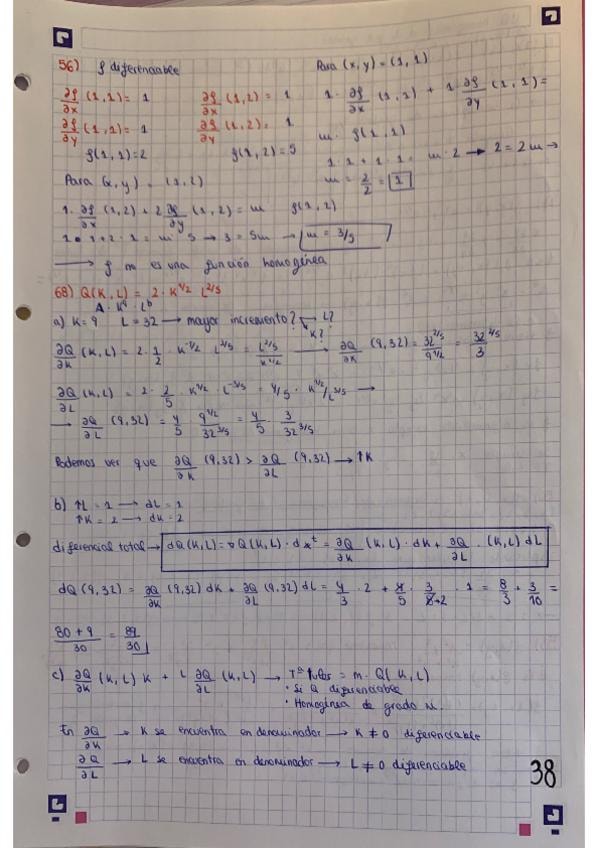 56) f diferenciable
Para (x,y) = (1,1)
∂f/∂x (1,1) = 1   ∂f/∂x (1,2) = 1   1 · ∂f/∂x (1,1) + 1 · ∂f/∂y (1,1) =
∂f/∂y (1,1) = 1   ∂f/∂y (1,2) = 1   m · f(1,1)
f(1,1) = 2   f(1,2) = 5   1·1 + 1·1 = m·2 → 2 = 2m →
Para (x,y) = (1,2)   m = 2/2 = 1
1· ∂f/∂x (1,2) + 2 ∂f/∂y (1,2) = m f(1,2)
1·1+2·1 = m 5 → 3 = 5m → m = 3/5
→ f no es una función homogénea
68) Q(K,L) = 2·K^1/2 L^2/5
A · K^a · L^b
a) K=9 L=32 → mayor incremento? L? K?
∂Q/∂K (K,L) = 2·1/2 · K^-1/2 L^2/5 = L^2/5 / K^1/2 → ∂Q/∂K (9,32) = 32^2/5 / 9^1/2 = 32^2/5 / 3
∂Q/∂L (K,L) = 2· 2/5 · K^1/2 · L^-3/5 = 4/5 · K^1/2 / L^3/5 →
→ ∂Q/∂L (9,32) = 4/5 9^1/2 / 32^3/5 = 4/5 · 3 / 32^3/5
Podemos ver que ∂Q/∂K (9,32) > ∂Q/∂L (9,32) → ↑K
b) ↑L = 1 → dL = 1
↑K = 2 → dK = 2
diferencial total → dQ(K,L) = ∇Q(K,L) · dx^t = ∂Q/∂K (K,L) · dK + ∂Q/∂L · (K,L) dL
dQ (9,32) = ∂Q/∂K (9,32) dK + ∂Q/∂L (9,32) dL = 4/3 · 2 + 4/5 · 3/8→2 · 1 = 8/3 + 3/10 =
80+9/30 = 89/30
c) ∂Q/∂K (K,L) K + L ∂Q/∂L (K,L) → Tª Euler = m · Q(K,L)
· Si Q diferenciable
· Homogénea de grado m.
En ∂Q/∂K → K se encuentra en denominador → K ≠ 0 diferenciable
∂Q/∂L → L se encuentra en denominador → L ≠ 0 diferenciable
38